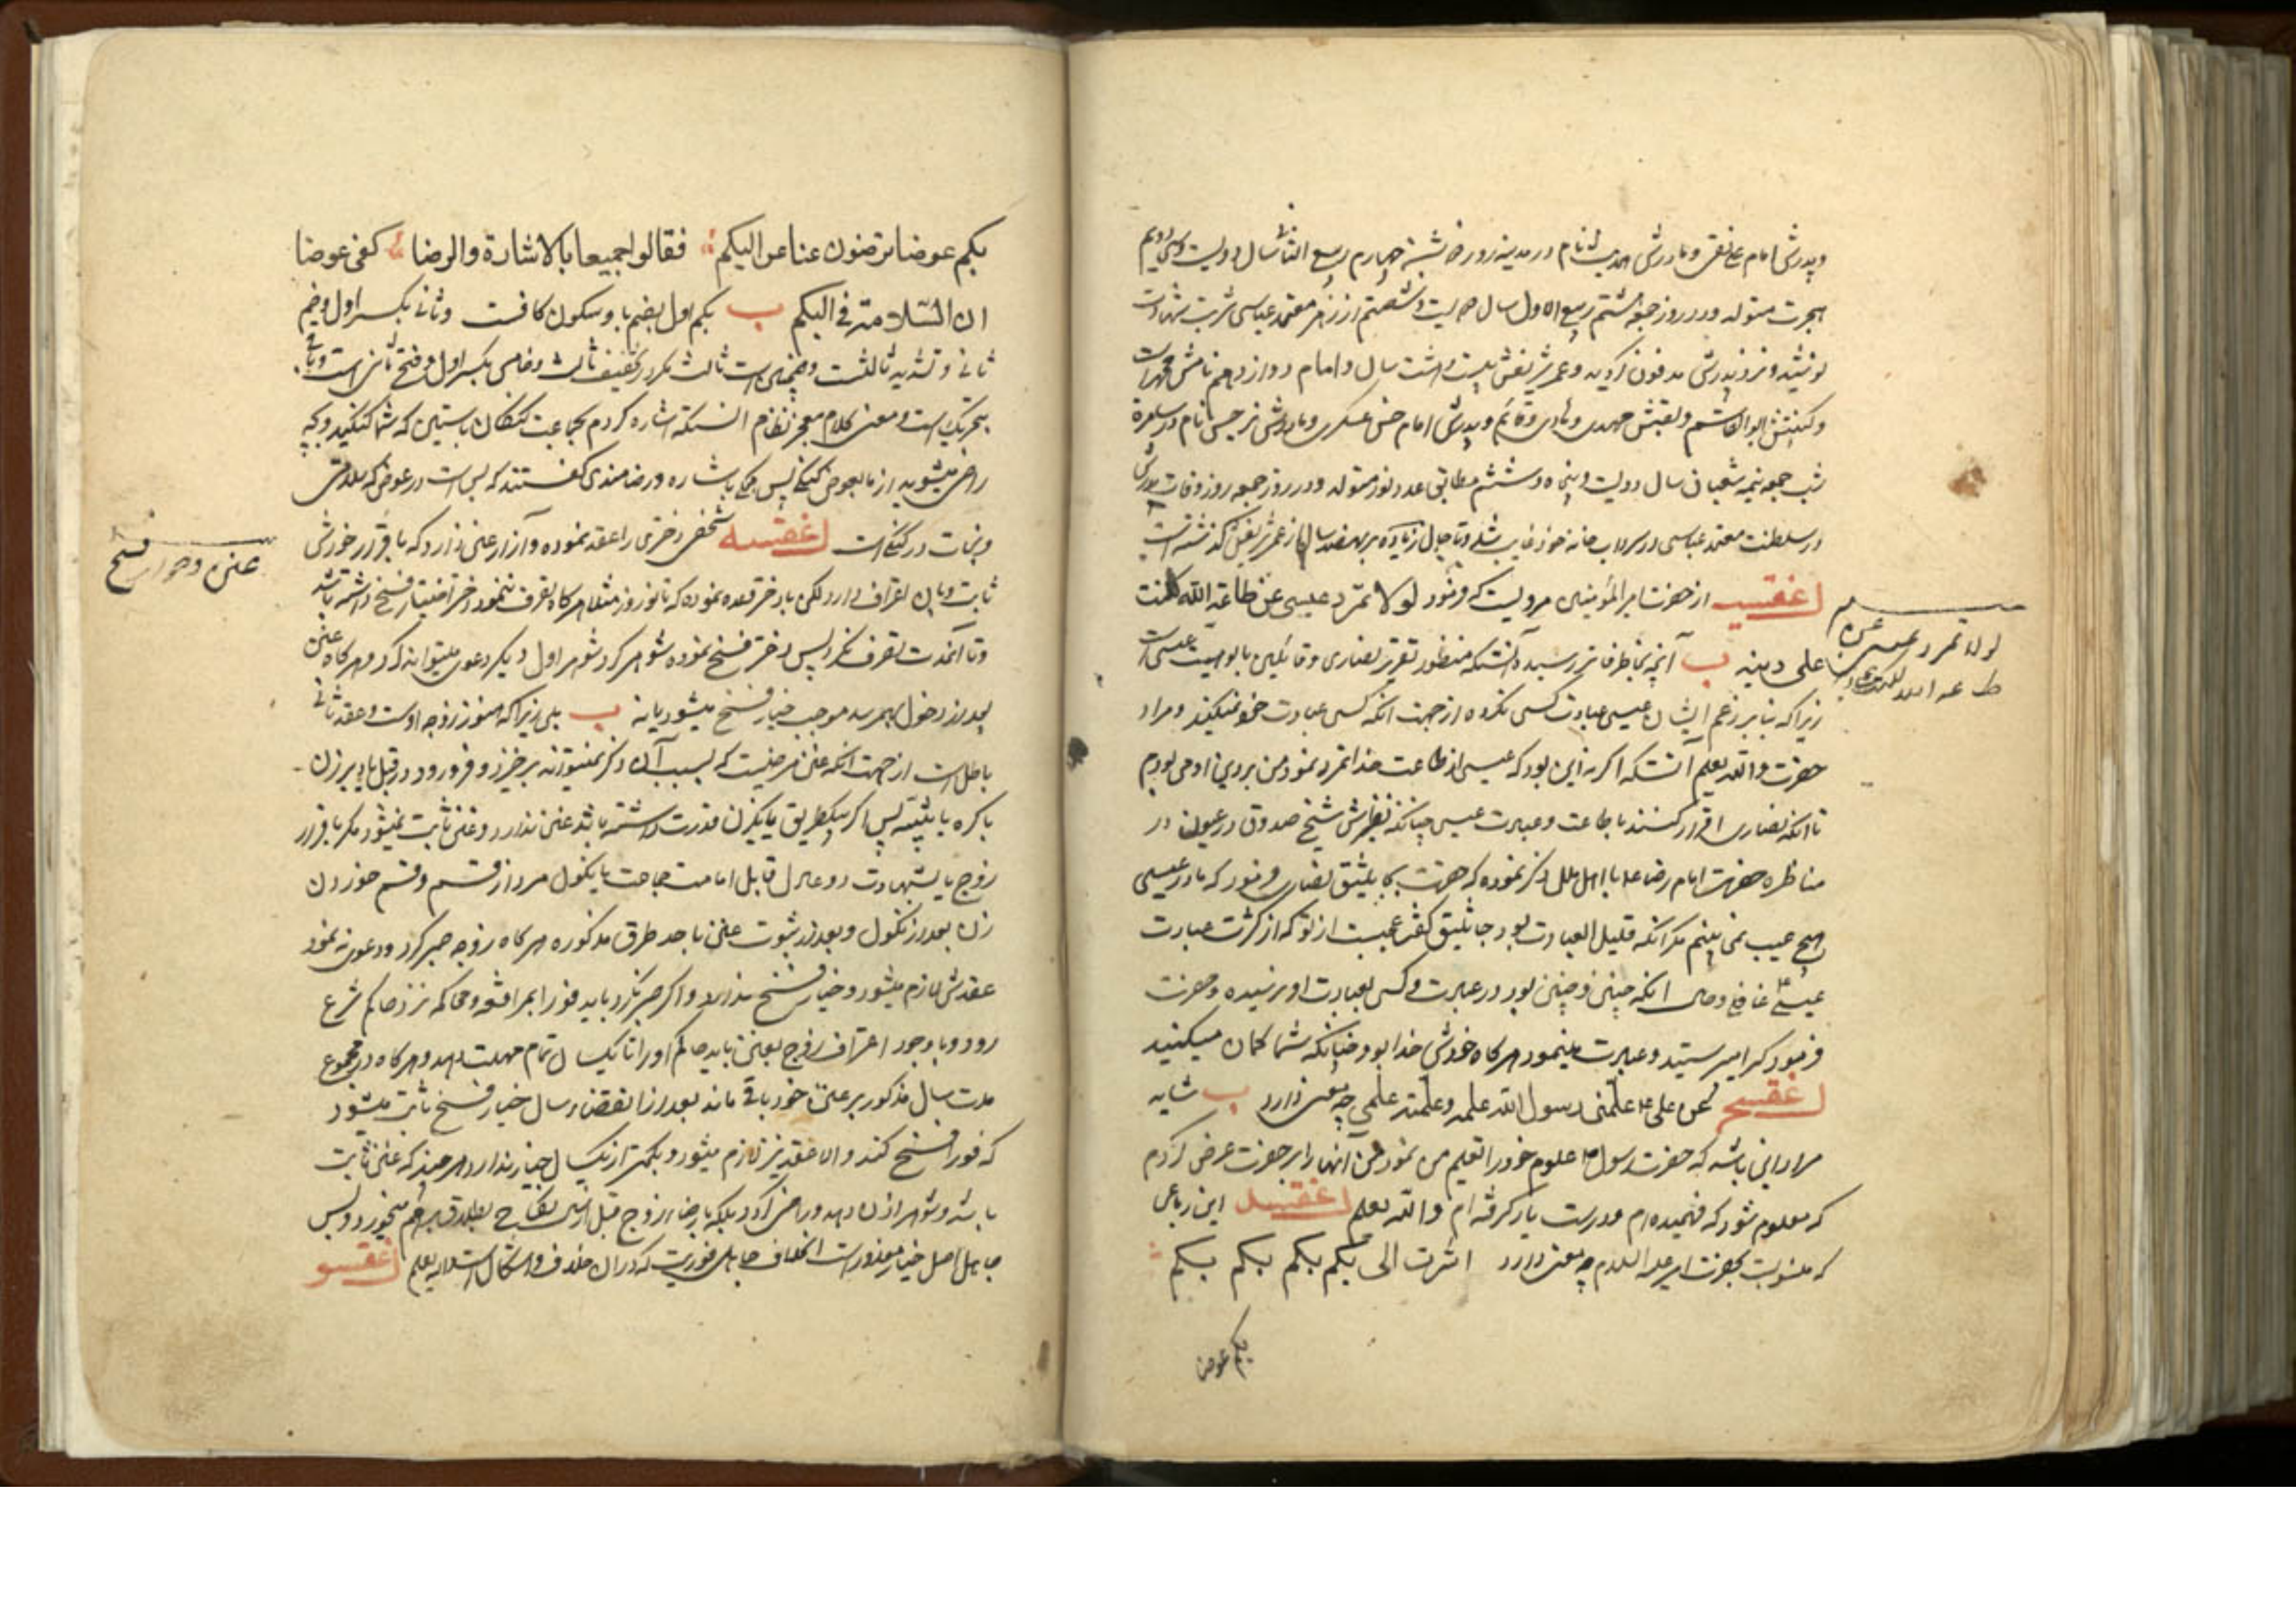 و پدرش امام علی نقی و مادرش حدیث نام در مدینه روز شنبه چهارم ربیع الثانی سال دویست و سی و دویم
هجرت متولد و در روز جمعه هشتم ربیع الاول سال دویست و شصتم از زهر معتمد عباسی شربت شهادت
نوشیده و نزد پدرش مدفون گردید و عمر شریفش بیست و هشت سال و امام دوازدهم نامش محمد است
و کنیتش ابوالقاسم و لقبش مهدی و هادی و قائم و پدرش امام حسن عسکری و مادرش نرجس نام در سامره
شب جمعه نیمه شعبان سال دویست و پنجاه و ششم مطابق عدد نور متولد و در روز جمعه روز وفات پدرش
در سلطنت معتمد عباسی در سرداب خانه خود غایب شده و تا حال زیاده بر هفصد سال از عمر شریفش گذشته است
از حضرت امیر المؤمنین مرویست که فرمود لولا تمرد عیسی عن طاعة الله لکنت
علی دینه ب آنچه بخاطر فاتر رسیده آنستکه منظور تقریر نصاری و قائلین بالوهیت عیسی است
زیرا که بنا بر زعم ایشان عیسی عبادت کسی نکرده از جهت آنکه کسی عبادت خود نمیکند و مراد
حضرت والله یعلم آنستکه اگر نه این بود که عیسی از طاعت خدا تمرد نمود من بر دین او می بودم
تا آنکه نصاری اقرار کنند باطاعت و عبادت عیسی چنانکه نظیرش شیخ صدوق در عیون در
مناظره حضرت امام رضا ع با اهل ملل ذکر نموده که حضرت بجاثلیق نصاری فرمود که ما در عیسی
هیچ عیب نمی بینم مگر آنکه قلیل العبادت بود جاثلیق گفت عجبست از تو که از کثرت عبادت
عیسی ع غافلی و حال آنکه چنین و چنین بود در عبادت و کسی بعبادت او نرسیده و حضرت
فرمود کرا میپرستید و عبادت مینمود هرگاه خودش خدا بود چنانکه شما گمان میکنید
نحن علی ع علمنی رسول الله علمه و علمته علمی چه معنی دارد ب شاید
مراد این باشد که حضرت رسول ص علوم خود را تعلیم من نمود و من آنها را بر حضرت عرض کردم
که معلوم شود که فهمیده ام و درست یاد گرفته ام والله یعلم این رباعی
که منسوبست بحضرت امیر علیه السلام چه معنی دارد اشرت الی بکم بکم بکم بکم
بکم عوض
لولا تمرد عیسی عن
طاعة الله
بکم عوضا ترضون عنا عن الیکم فقالوا جمیعا بالاشارة والرضا کفی عوضا
ان السلامة فی الیکم ب بکم اول بضم با و سکون کافست و ثانی بکسر اول و ضم
ثانی و تشدید ثالثست
بتحریک است و معنی کلام معجز نظام آنستکه اشاره کردم بجماعت گنگان باستین که شما گنگید و بچه
راضی میشوید از ما بعوض گنگی پس همگی باشاره و رضامندی گفتند که بس است در عوض که سلامتی
و نجات در گنگی است شخصی دختری را عقد نموده و آزار عنن دارد که باقرار خودش
ثابت و بآن اعتراف دارد لکن با دختر وعده نموده که تا نوروز مثلا هرگاه تصرف ننمود دختر اختیار فسخ داشته باشد
و تا آنمدت تصرف نکرد پس دختر فسخ نموده شوهر کرد شوهر اول دیگر دعوی میتواند کرد و هرگاه عنن
بعد از دخول بهمرسد موجب خیار فسخ میشود یا نه ب بلی زیرا که هنوز زوجه اوست و عقد ثانی
باطل است از جهت آنکه عنن مرضیست که بسبب آن ذکر نمیتواند برخیزد و فرو رود در قبل یا دبر زن
باکره یا ثیبه پس اگر بیکطریق یا بیکزن قدرت داشته باشد عنن ندارد و عنن ثابت نمیشود مگر باقرار
زوج یا بشهادت دو عادل قابل امامت جماعت یا نکول مرد از قسم و قسم خوردن
زن بعد از نکول و بعد از ثبوت عنن باحد طرق مذکوره هرگاه زوجه صبر کرد و دعوی ننمود
عقدش لازم میشود و خیار فسخ ندارد و اگر صبر نکرد باید فورا بمرافعه و محاکمه نزد حاکم شرع
رود و با وجود اعتراف زوج بعنن باید حاکم او را تا یکسال تمام مهلت دهد و هرگاه در مجموع
مدت سال مذکور بر عنن خود باقی ماند بعد از انقضاء سال خیار فسخ ثابت میشود
که فورا فسخ کند و الا عقد نیز لازم میشود و بکمتر از یکسال خیار ندارد هر چند که عنن ثابت
باشد و شوهر اذن دهد و راضی گردد بلکه با رضاء زوج قبل از سال نکاح بطلاق بر هم میخورد و بس
جاهل اصل خیار معذور است بخلاف جاهل فوریت که در آن خلاف و اشکال است والله یعلم
عنن و جواز فسخ